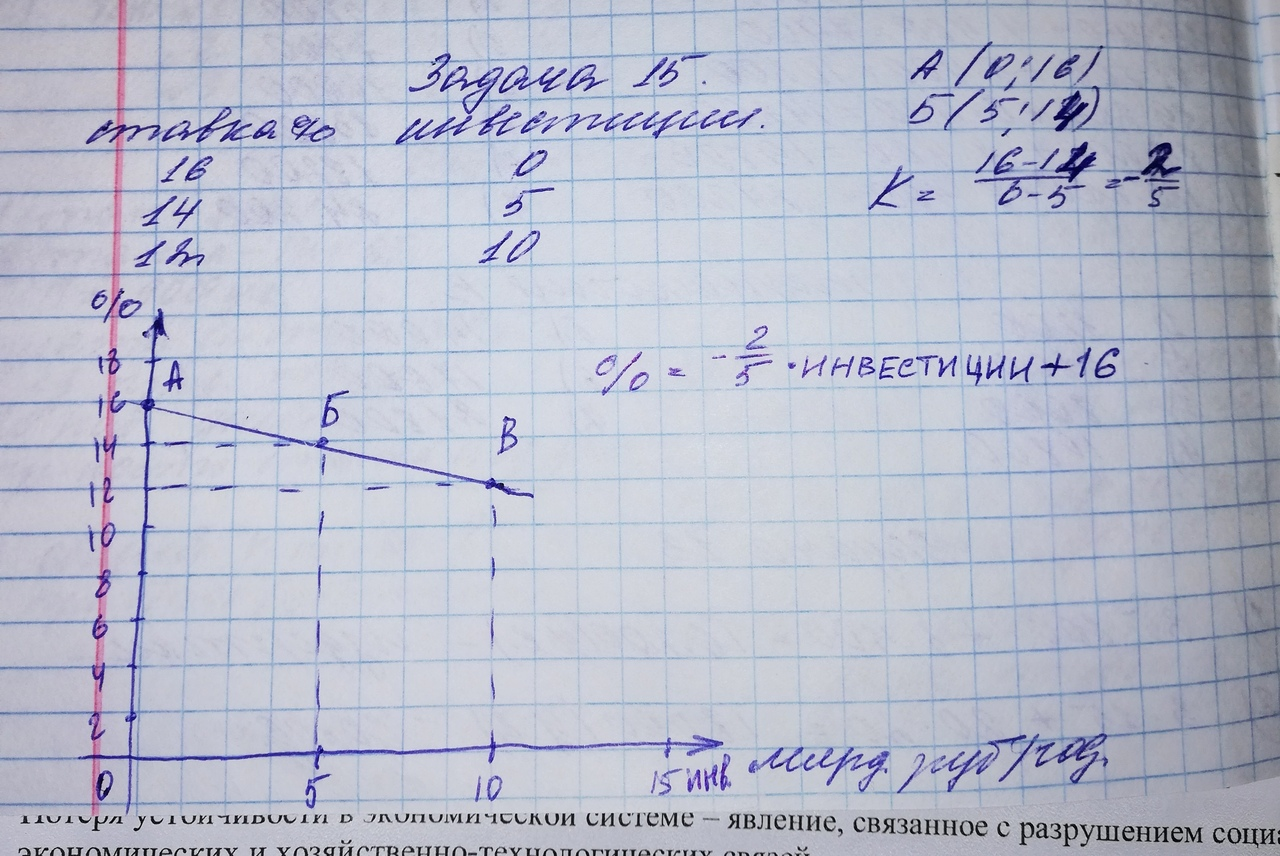 Задача 15.
ставка % инвестиции.
16 0
14 5
12 10
А (0; 16)
Б (5; 14)
К = 16-14 / 0-5 = - 2/5
% = - 2/5 · ИНВЕСТИЦИИ + 16
%
18
16
14
12
10
8
6
4
2
0
А
Б
В
5 10 15 инв. млрд. руб/год.
Потеря устойчивости в экономической системе – явление, связанное с разрушением социа
экономических и хозяйственно-технологических связей